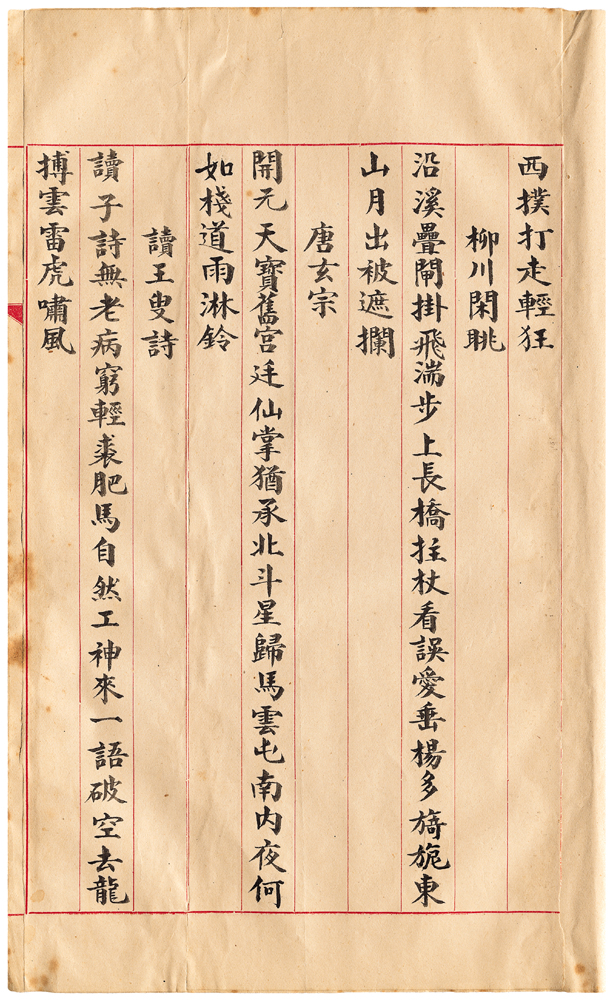 西撲打走輕狂
柳川閑眺
沿溪疊閘掛飛湍步上長橋拄杖看誤愛垂楊多旖旎東
山月出被遮攔
唐玄宗
開元天寶舊宮廷仙掌猶承北斗星歸馬雲屯南内夜何
如棧道雨淋鈴
讀王叟詩
讀子詩無老病窮輕裘肥馬自然工神來一語破空去龍
搏雲雷虎嘯風